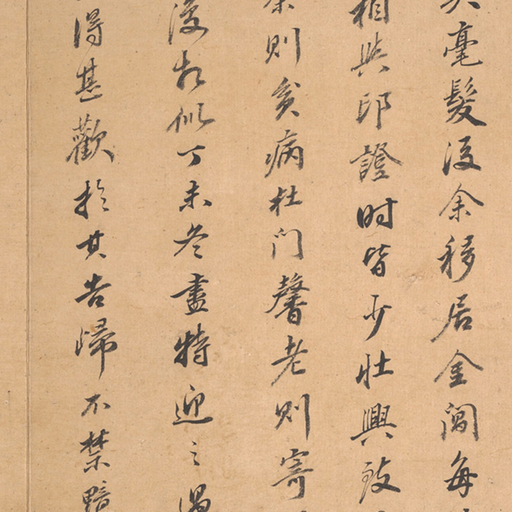 毫髮後余移居金閶每
相與印證时皆少壯興致
則貧病杜门馨老则寄
後相似丁未冬盡特迎之
得甚歡於其告歸不禁黯